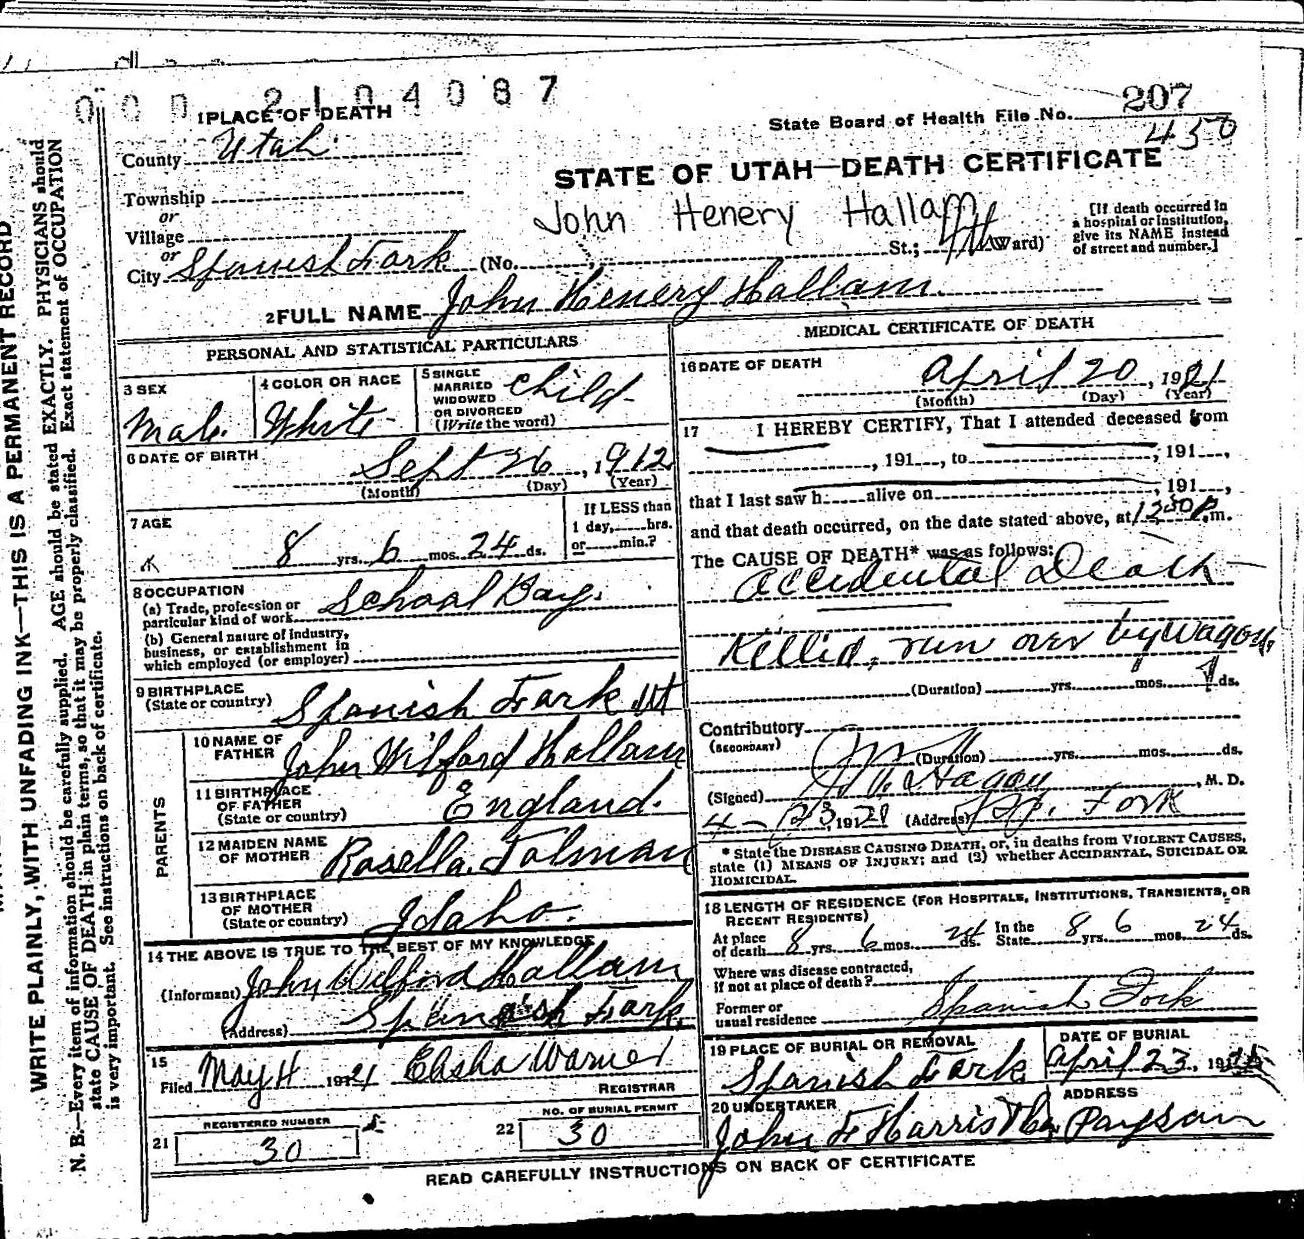 000 2104087
1 PLACE OF DEATH
State Board of Health File No. 207
450
County Utah
STATE OF UTAH—DEATH CERTIFICATE
Township
or
Village
or
John Henery Hallam
City Spanish Fork (No. St.; 4th Ward)
[If death occurred in
a hospital or institution,
give its NAME instead
of street and number.]
2 FULL NAME John Henery Hallam
PERSONAL AND STATISTICAL PARTICULARS
3 SEX
Male
4 COLOR OR RACE
White
5 SINGLE
MARRIED
WIDOWED
OR DIVORCED
(Write the word)
Child
6 DATE OF BIRTH
Sept 26, 1912
(Month) (Day) (Year)
7 AGE
8 yrs. 6 mos. 24 ds.
If LESS than
1 day, hrs.
or min.?
8 OCCUPATION
(a) Trade, profession or
particular kind of work School Boy.
(b) General nature of industry,
business, or establishment in
which employed (or employer)
9 BIRTHPLACE
(State or country) Spanish Fork Ut
PARENTS
10 NAME OF
FATHER John Wilford Hallam
11 BIRTHPLACE
OF FATHER
(State or country) England.
12 MAIDEN NAME
OF MOTHER Rosella Tolman
13 BIRTHPLACE
OF MOTHER
(State or country) Idaho.
14 THE ABOVE IS TRUE TO THE BEST OF MY KNOWLEDGE
(Informant) John Wilford Hallam
(Address) Spanish Fork.
15
Filed May 4 1921 Elisha Warner
REGISTRAR
21
REGISTERED NUMBER
30
22
NO. OF BURIAL PERMIT
30
MEDICAL CERTIFICATE OF DEATH
16 DATE OF DEATH
April 20, 1921
(Month) (Day) (Year)
17 I HEREBY CERTIFY, That I attended deceased from
, 191 , to , 191 ,
that I last saw h alive on , 191 ,
and that death occurred, on the date stated above, at 1250 P.m.
The CAUSE OF DEATH* was as follows:
Accidental Death
Killed, run over by wagon,
(Duration) yrs. mos. ds.
Contributory
(SECONDARY)
(Duration) yrs. mos. ds.
(Signed) Hagan, M. D.
4-23, 1921 (Address) Sp. Fork
* State the DISEASE CAUSING DEATH, or, in deaths from VIOLENT CAUSES,
state (1) MEANS OF INJURY; and (2) whether ACCIDENTAL, SUICIDAL OR
HOMICIDAL.
18 LENGTH OF RESIDENCE (FOR HOSPITALS, INSTITUTIONS, TRANSIENTS, OR
RECENT RESIDENTS)
At place
of death 8 yrs. 6 mos. 24 ds. In the
State 8 yrs. 6 mos. 24 ds.
Where was disease contracted,
if not at place of death?
Former or
usual residence Spanish Fork
19 PLACE OF BURIAL OR REMOVAL
Spanish Fork
DATE OF BURIAL
April 23. 19
20 UNDERTAKER
John F Harris
ADDRESS
Payson
READ CAREFULLY INSTRUCTIONS ON BACK OF CERTIFICATE
WRITE PLAINLY, WITH UNFADING INK—THIS IS A PERMANENT RECORD
N. B.—Every item of information should be carefully supplied. AGE should be stated EXACTLY. PHYSICIANS should
state CAUSE OF DEATH in plain terms, so that it may be properly classified. Exact statement of OCCUPATION
is very important. See instructions on back of certificate.